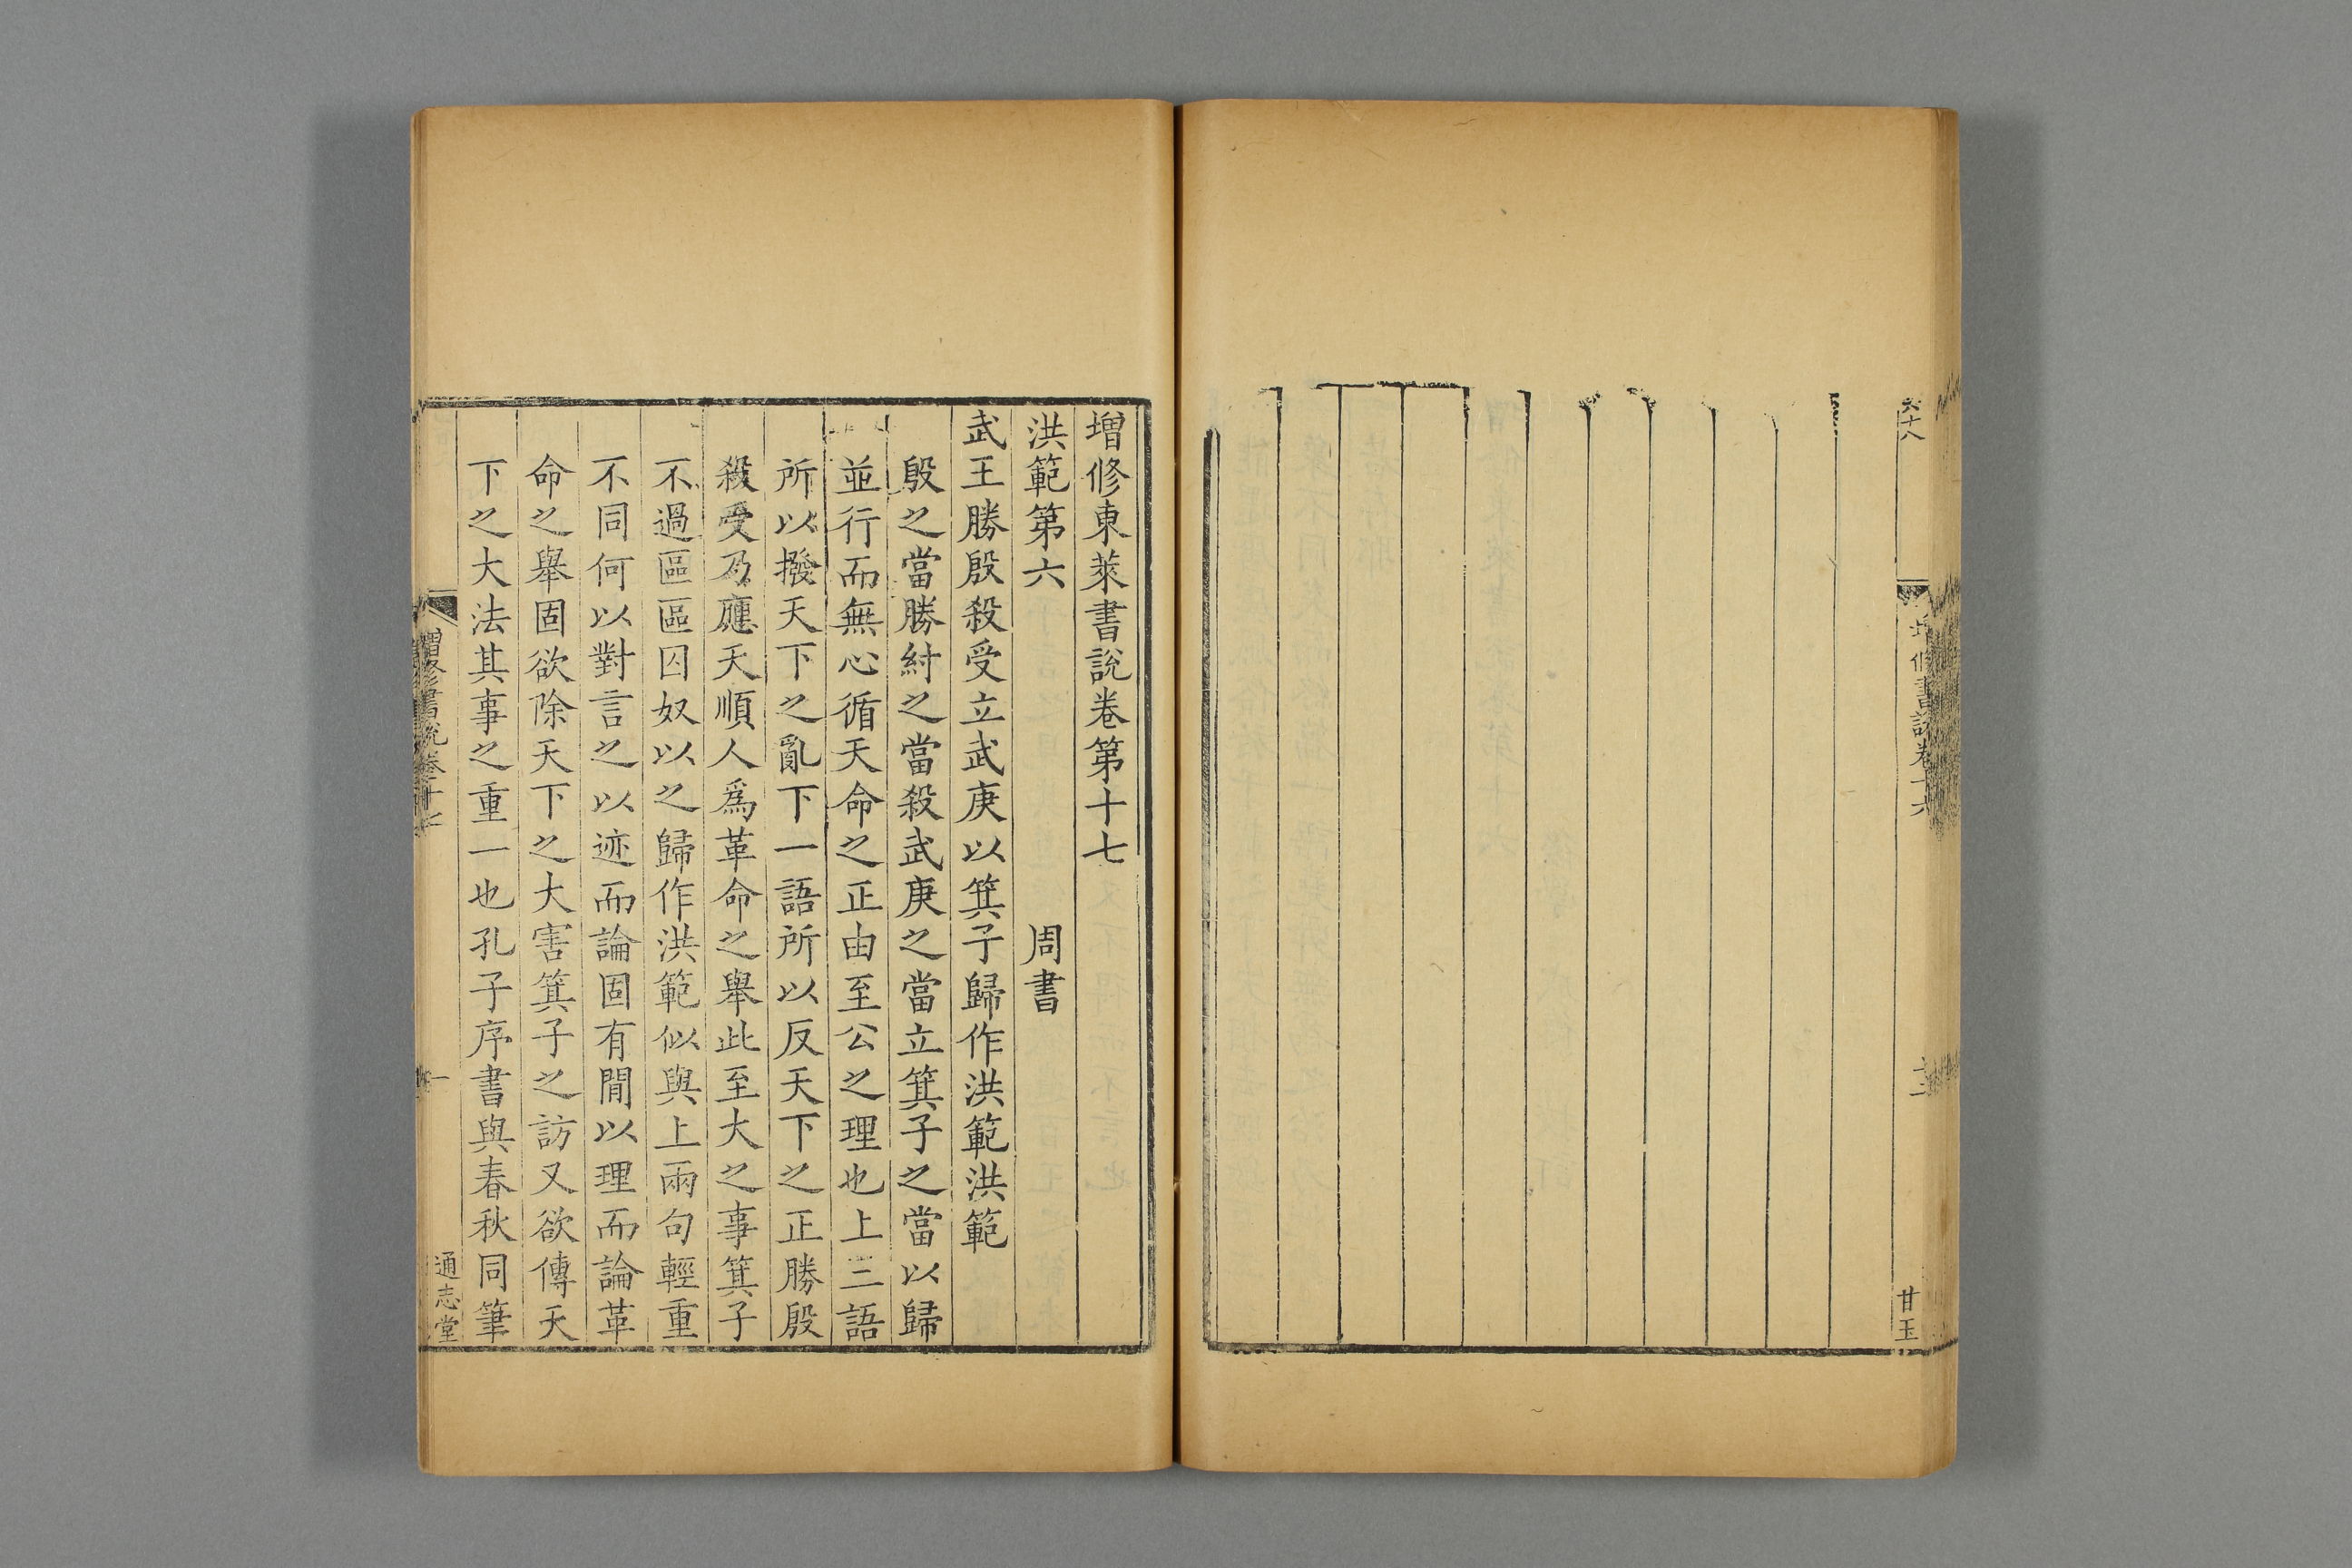 六十八
増修書説卷十六
甘玉
増修東萊書說卷第十七
洪範第六 周書
武王勝殷殺受立武庚以箕子歸作洪範洪範
殷之當勝紂之當殺武庚之當立箕子之當以歸
並行而無心循天命之正由至公之理也上三語
所以撥天下之亂下一語所以反天下之正勝殷
殺受乃應天順人爲革命之舉此至大之事箕子
不過區區囚奴以之歸作洪範似與上兩句輕重
不同何以對言之以迹而論固有閒以理而論革
命之舉固欲除天下之大害箕子之訪又欲傳天
下之大法其事之重一也孔子序書與春秋同筆
増修書說卷十七
一
通志堂